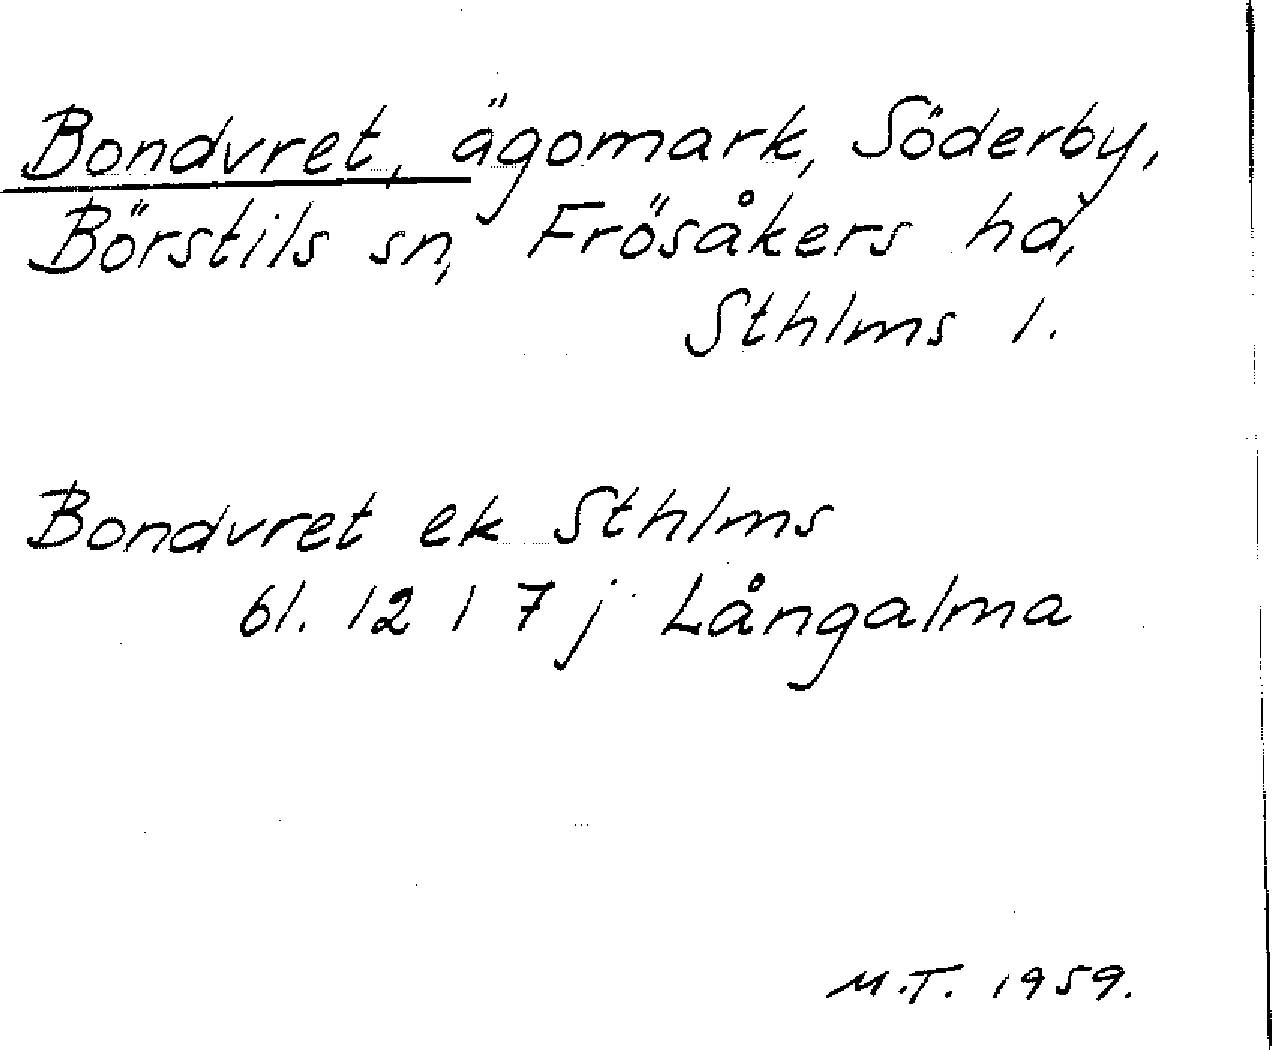 Bondvret, ägomark, Söderby,
Börstils sn, Frösåkers hd,
Sthlms l.
Bondvret ek Sthlms
bl. 12 I 7 j Långalma
M.T. 1959.